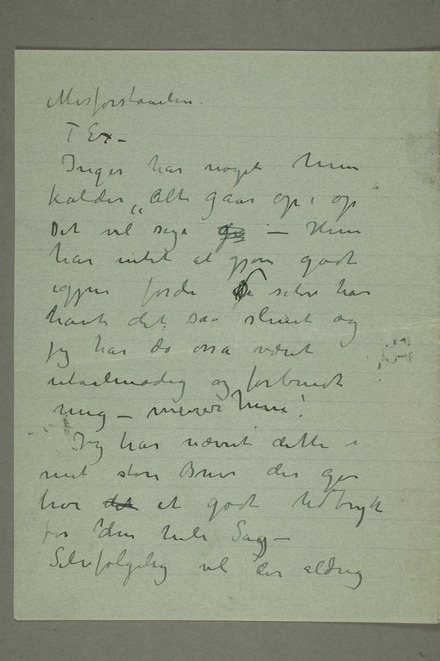 Misforstaaelsen.
T Ex –
Inger har noget hun
kalder „Alt gaar op i op"
Det vil sige – Hun
har intet at gjøre godt
igjen fordi selv har
havt det saa slemt og
jeg har da ossa været
utaalmodig og forbandt
mig – mener hun!
Jeg har nævnt dette i
mit store Brev der gør
hvor det et godt Udtryk
for den hele Sag –
Selvfølgelig vil der aldrig